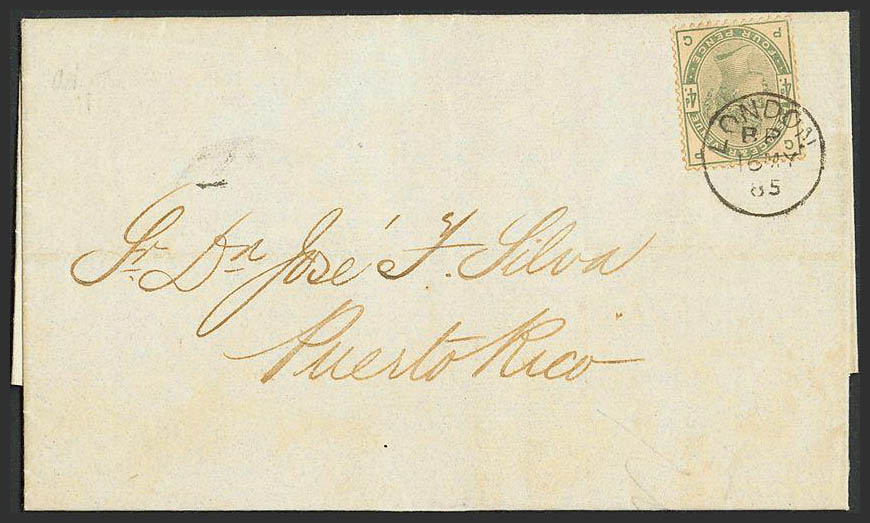 P C
FOUR PENCE
4 4
P
LONDON
16 MY
85
Sr. Dn José F. Silva
Puerto Rico